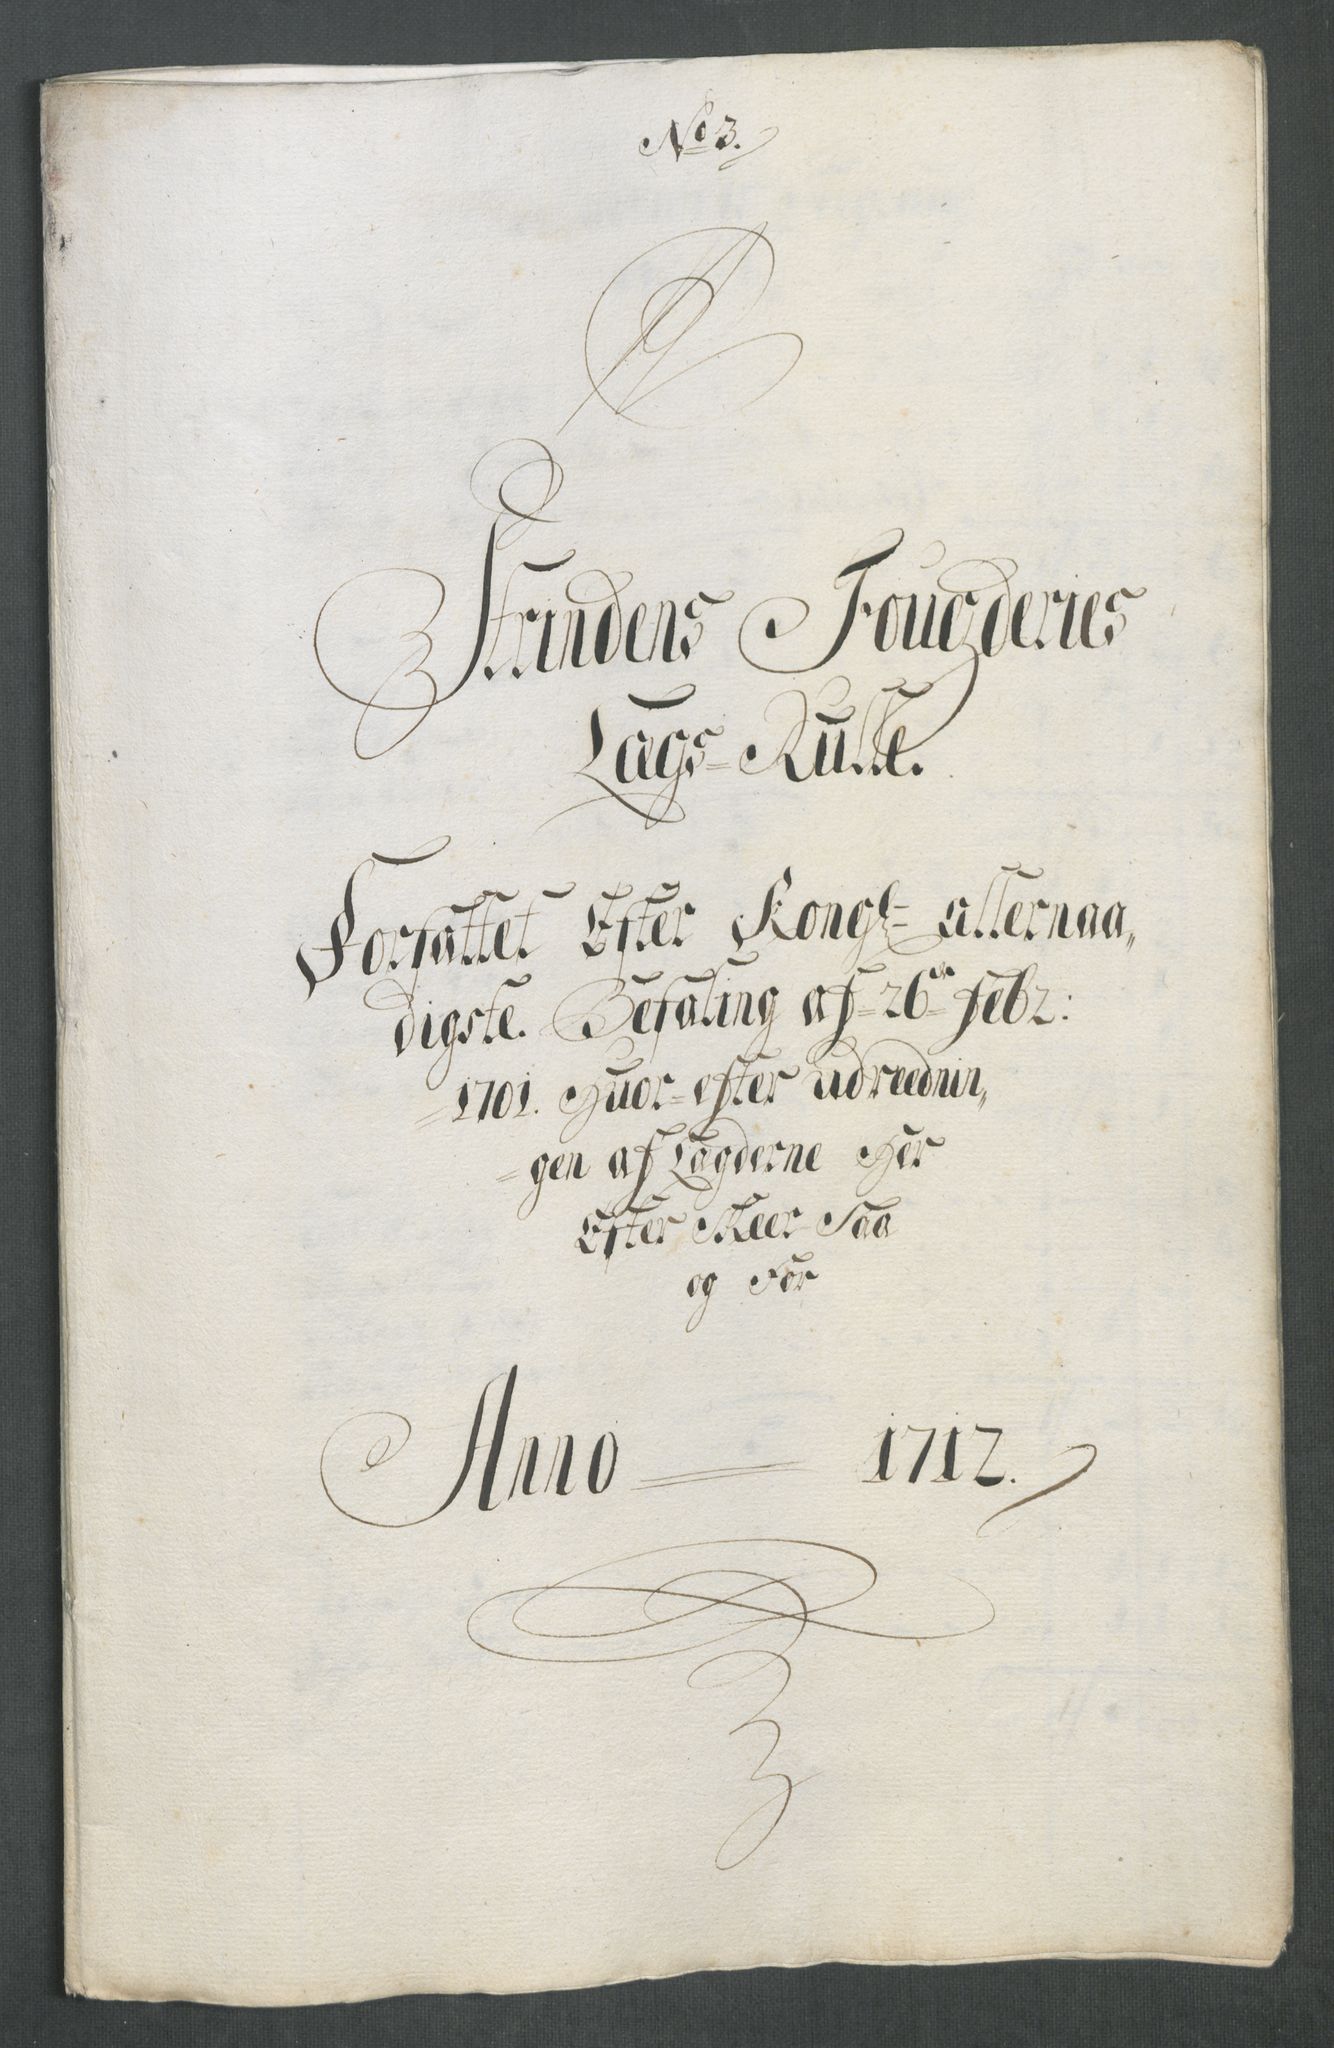 No 3.
Strindens Fougderies
Lægs=Rulle.
Forfattet Efter Kongl= allernaa„
digste. Befaling af=26de Febr:
=1701. Huor=efter udreednin„
=gen af Lægderne Her
Efter Skeer Saa
og For
Anno = 1712.